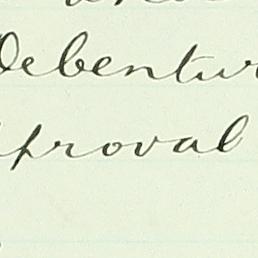 Debentur
proval